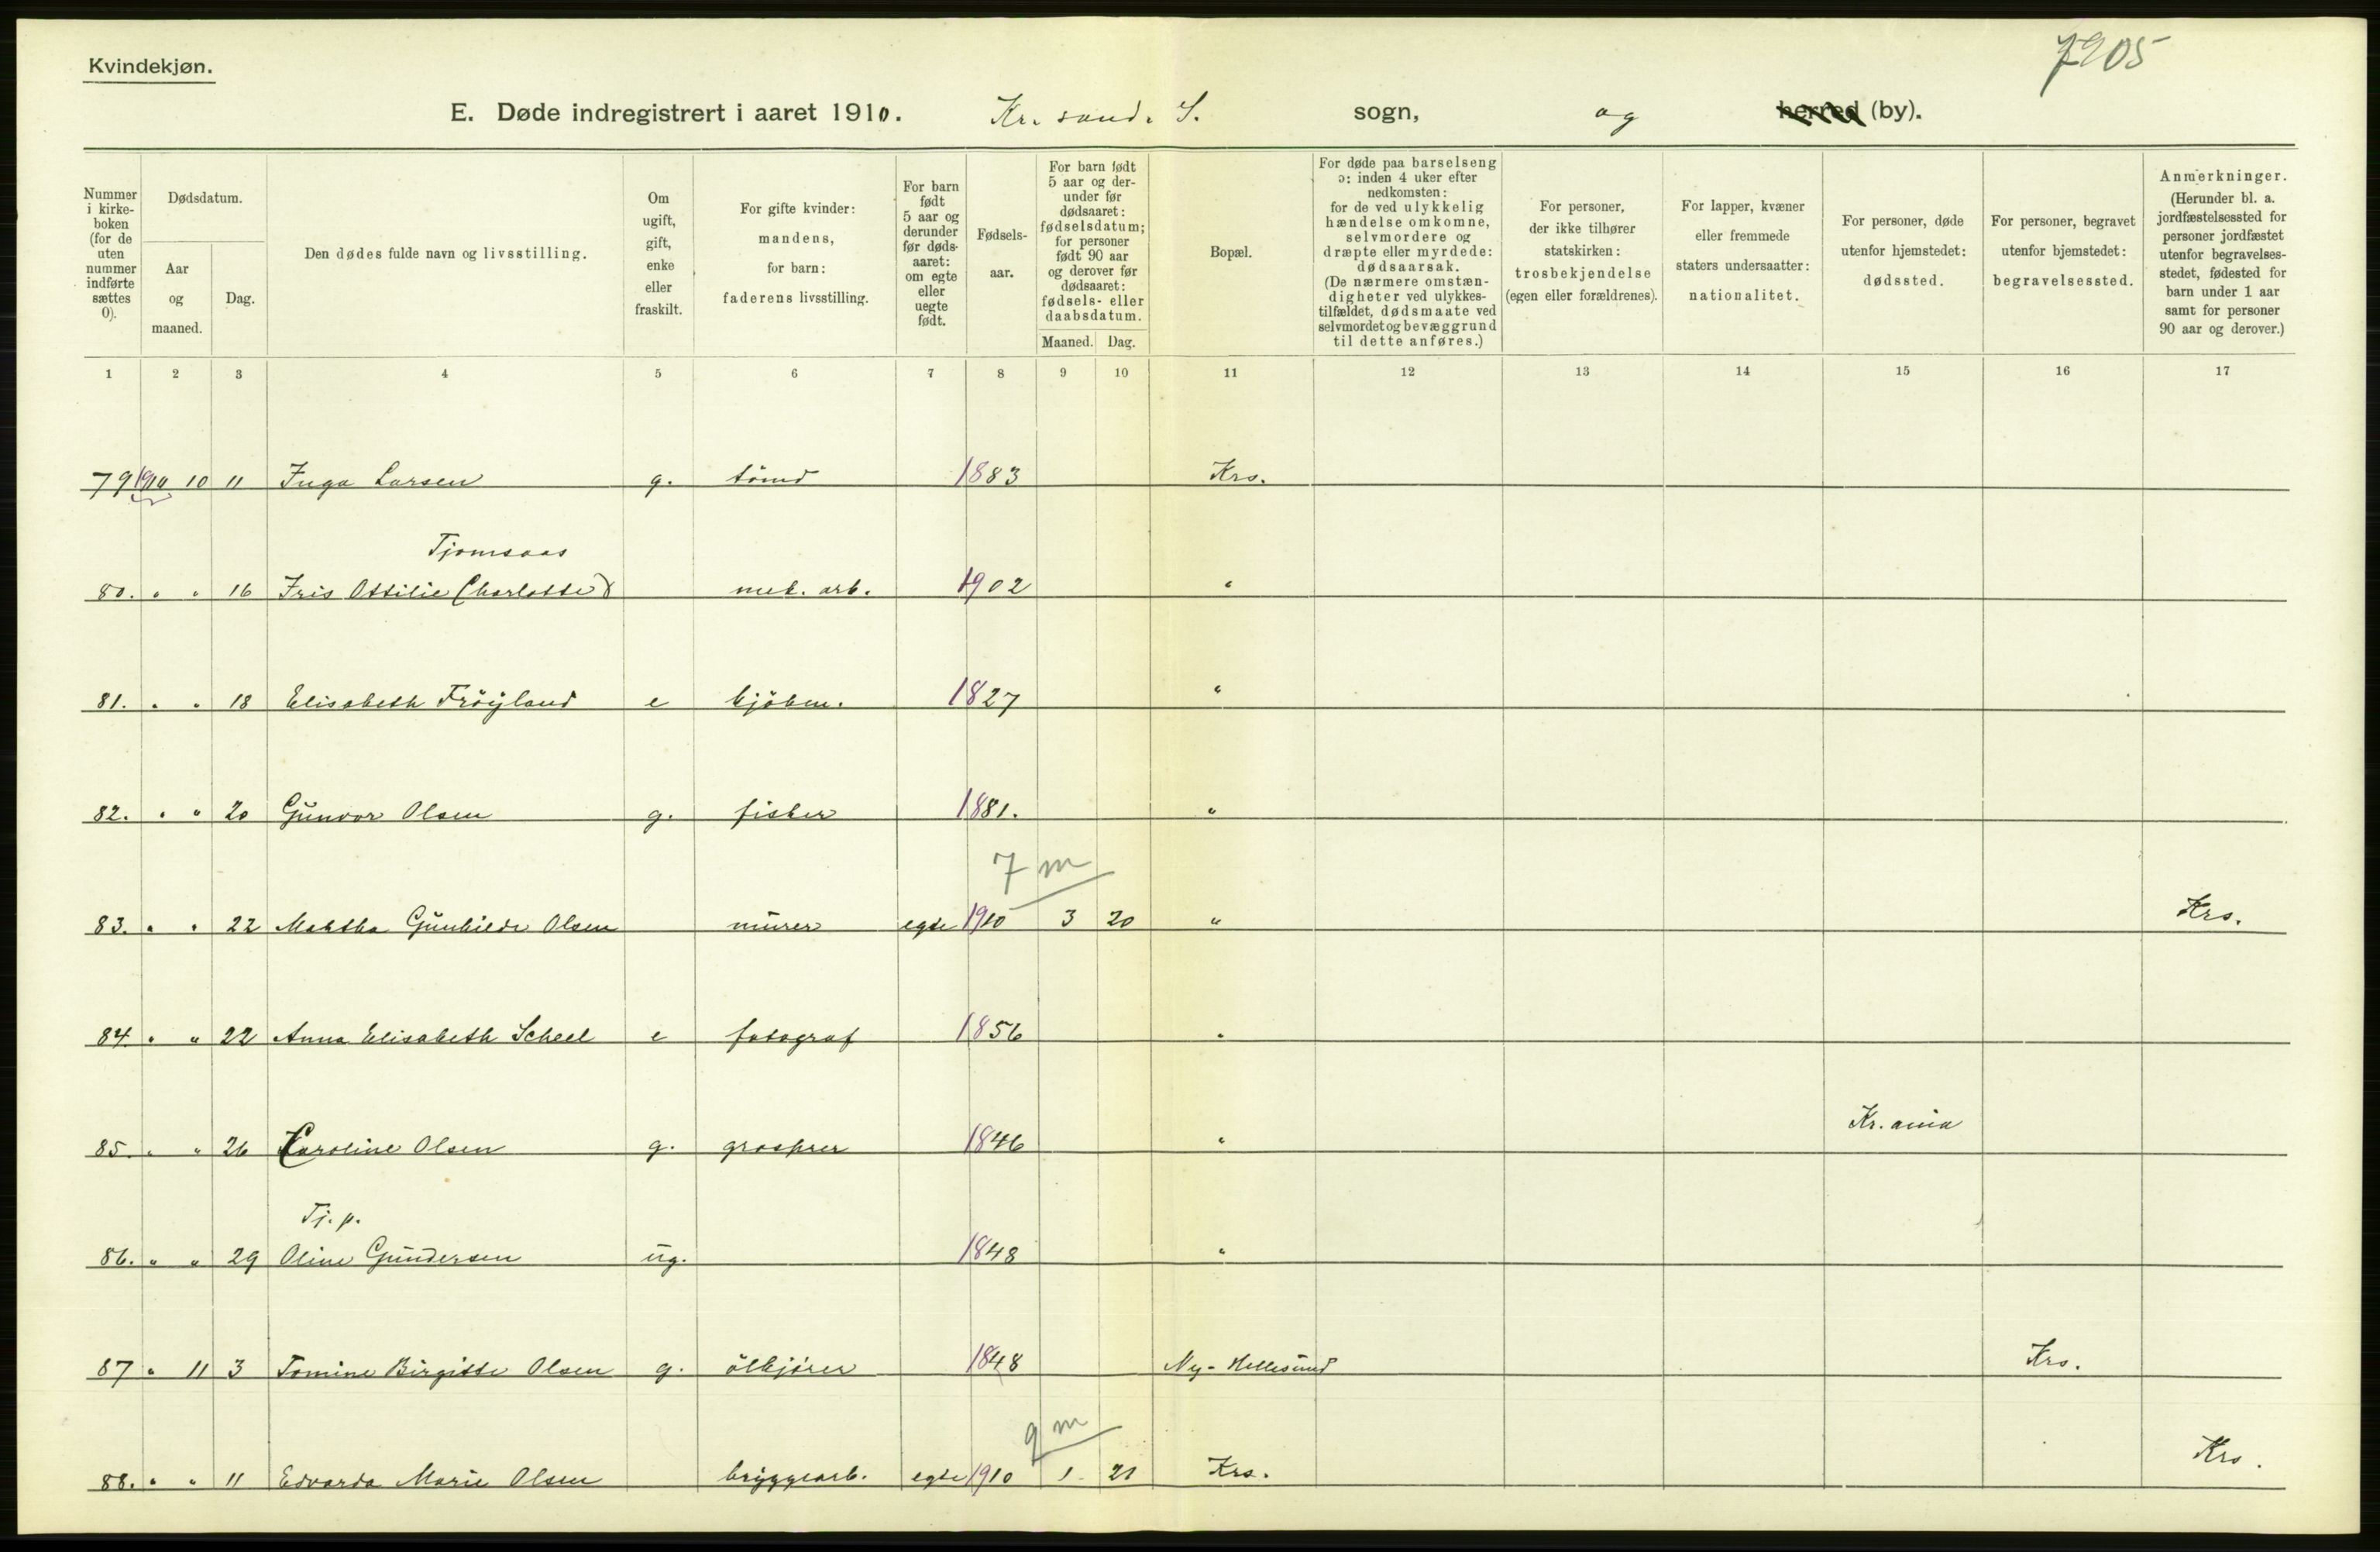 Kvindekjøn.
7205
E. Døde indregistrert i aaret 1910. Kr. sand. S. sogn, og herred (by).
Nummer i kirke-boken (for de uten nummer indførte sættes 0).
Dødsdatum.
Aar og maaned.
Dag.
Den dødes fulde navn og livsstilling.
Om ugift, gift, enke eller fraskilt.
For gifte kvinder: mandens, for barn: faderens livsstilling.
For barn født 5 aar og derunder før døds-aaret: om egte eller uegte født.
Fødsels-aar.
For barn født 5 aar og der-under før dødsaaret: fødselsdatum; for personer født 90 aar og derover før dødsaaret: fødsels- eller daabsdatum.
Maaned.
Dag.
Bopæl.
For døde paa barselseng ɔ: inden 4 uker efter nedkomsten: for de ved ulykkelig hændelse omkomne, selvmordere og dræpte eller myrdede: dødsaarsak. (De nærmere omstæn-digheter ved ulykkes-tilfældet, dødsmaate ved selvmordet og bevæggrund til dette anføres.)
For personer, der ikke tilhører statskirken: trosbekjendelse (egen eller forældrenes).
For lapper, kvæner eller fremmede staters undersaatter: nationalitet.
For personer, døde utenfor hjemstedet: dødssted.
For personer, begravet utenfor bjemstedet: begravelsessted.
Anmerkninger. (Herunder bl. a. jordfæstelsessted for personer jordfæstet utenfor begravelses-stedet, fødested for barn under 1 aar samt for personer 90 aar og derover.)
1 2 3 4 5 6 7 8 9 10 11 12 13 14 15 16 17
79 1910 10 11 Inga Larsen g. tömd 1883 Krs.
Tjomsaas
80. " " 16 Iris Ottilie Charlotte mek. arb. 1902 "
81. " " 18 Elisabeth Fröyland e kjöbm. 1827 "
82. " " 20 Gunvor Olsen g. fisker 1881. "
7 m
83. " " 22 Martha Gunhilde Olsen murer egte 1910 3 20 " Krs.
84 " " 22 Anna Elisabeth Scheel e fotograf 1856 "
85. " " 26 Caroline Olsen g. grosserer 1846 " Kr. ania
Tj. p.
86. " " 29 Oline Gundersen ug. 1848 "
87 " 11 3 Tomine Birgitte Olsen g. ölkjörer 1848 Ny-Hellesund Krs.
9 m
88. " " 11 Edvarda Marie Olsen bryggearb. egte 1910 1 21 Krs. Krs.